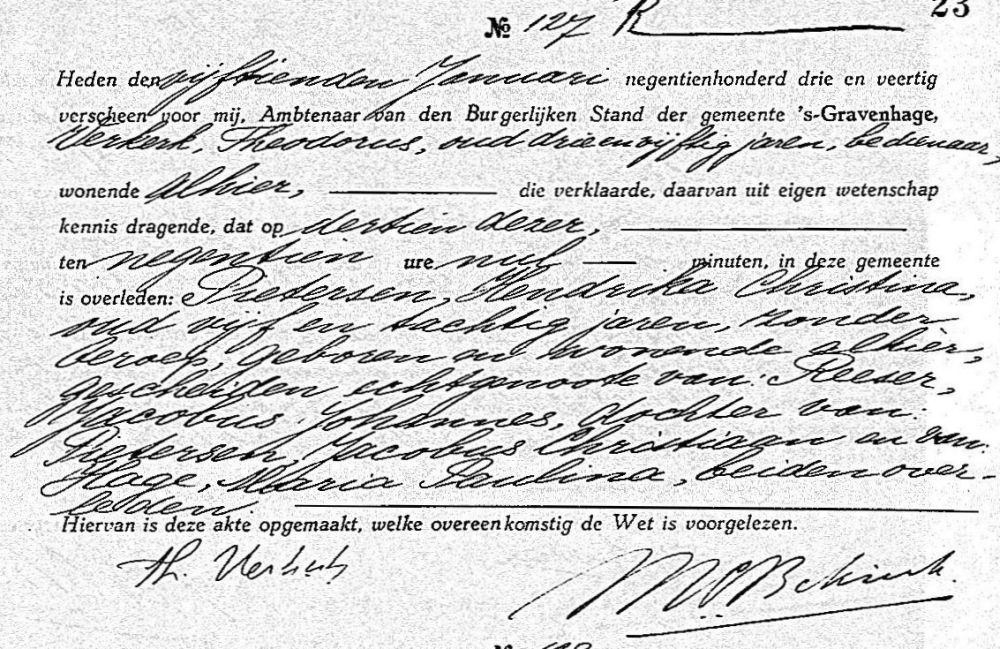 23
№ 127 R
Heden den vijftienden Januari negentienhonderd drie en veertig
verscheen voor mij, Ambtenaar van den Burgerlijken Stand der gemeente 's-Gravenhage,
Verkerk, Theodorus, oud drieenvijftig jaren, bedienaar,
wonende alhier, die verklaarde, daarvan uit eigen wetenschap
kennis dragende, dat op dertien dezer,
ten negentien ure nul minuten, in deze gemeente
is overleden: Pietersen, Hendrika Christina,
oud vijf en tachtig jaren, zonder
beroep, geboren en wonende alhier,
gescheiden echtgenoote van: Reeser,
Jacobus Johannes, dochter van:
Pietersen, Jacobus Christiaan en van:
Hage, Maria Paulina, beiden over-
leden.
Hiervan is deze akte opgemaakt, welke overeenkomstig de Wet is voorgelezen.
Th. Verkerk
№